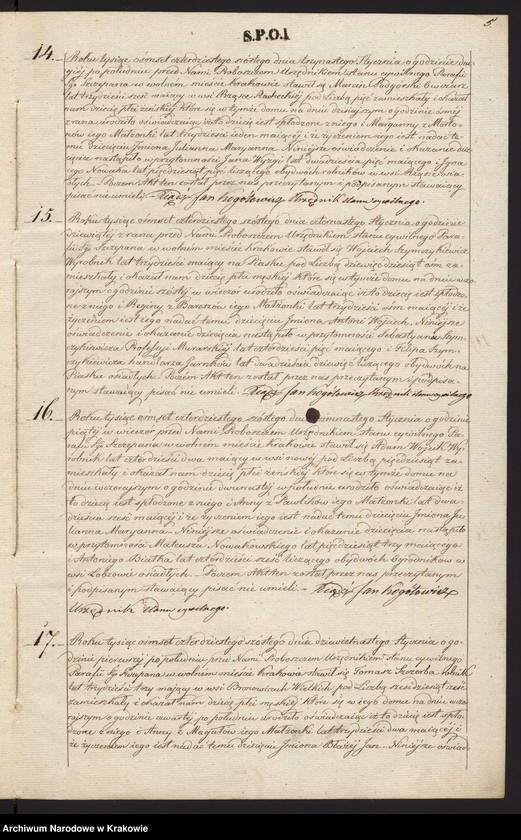 S.P.O.I
5
14.
Roku tysiąc ośmset czterdziestego szóstego dnia trzynastego Stycznia o godzinie dru-
giej po południu przed Nami Proboszczem Urzędnikiem stanu cywilnego Parafii
Sgo Szczepana w wolnem mieście Krakowie stawił się Marcin Podgórski
lat trzydzieści sześć maiący w wsi pod Liczbą pięć zamieszkały i okazał
nam dziecię płci żeńskiej które się w tymże domu na dniu dzisiejszym o godzinie ósmej
zrana urodziło oświadczając iż to dziecię jest spłodzone z niego i Maryanny z
jego Małżonki lat trzydzieści ieden maiącej i że życzeniem iego jest nadać te-
mu dziecięciu Imiona Julianna Maryanna Niniejsze oświadczenie i okazanie dzie-
cięcia nastąpiło w przytomności Jana lat dwadzieścia pięć maiącego i Igna-
cego Nowaka lat pięćdziesiąt pięć liczącego obydwóch rolników w wsi
Poczem Akt ten został przez nas przeczytanym i podpisanym stawaiący
pisać nie umieli. Xiądz Jan Rogółowicz Urzędnik stanu cywilnego.
15.
Roku tysiąc ośmset czterdziestego szóstego dnia czternastego Stycznia o godzinie
dziewiątej z rana przed Nami Proboszczem Urzędnikiem stanu cywilnego Para-
fii Sgo Szczepana w wolnem mieście Krakowie stawił się Woyciech Szymczykiewicz
Wyrobnik lat trzydzieści maiący na Piasku pod Liczbą dziewięćdziesiąt ośm za-
mieszkały i okazał nam dziecię płci męskiej które się w tymże domu na dniu wczo-
rajszym o godzinie szóstej w wieczór urodziło oświadczając iż to dziecię jest spłodzo-
ne z niego i Reginy z jego Małżonki lat trzydzieści ośm maiącej i że
życzeniem jest iego nadać temu dziecięciu Imiona Antoni Woyciech. Niniejsze
oświadczenie i okazanie dziecięcia nastąpiło w przytomności Sebastyana Szym-
czykiewicza Profesyi Murarskiej lat czterdzieści pięć maiącego i Szym-
czykiewicza handlarza lat dwadzieścia dziewięć liczącego obydwóch na
Piasku osiadłych. Poczem Akt ten został przez nas przeczytanym i podpisa-
nym stawaiący pisać nie umieli. Xiądz Jan Rogółowicz Urzędnik stanu cywilnego
16.
Roku tysiąc ośmset czterdziestego szóstego dnia Stycznia o godzinie
piątej w wieczór przed Nami Proboszczem Urzędnikiem stanu cywilnego Pa-
rafii Sgo Szczepana w wolnem mieście Krakowie stawił się Adam Wy-
robnik lat czterdzieści dwa maiący w wsi nowej pod Liczbą pięćdziesiąt za-
mieszkały i okazał nam dziecię płci żeńskiej które się w tymże domu na
dniu wczorajszym o godzinie dwunastej w południe urodziło oświadczając iż
to dziecię jest spłodzone z niego i Anny z Pawlików iego Małżonki lat dwa-
dzieścia sześć maiącej i że życzeniem iego jest nadać temu dziecięciu Imiona Ju-
lianna Maryanna. Niniejsze oświadczenie i okazanie dziecięcia nastąpiło
w przytomności Mateusza Nowakowskiego lat pięćdziesiąt trzy maiącego
i Antoniego lat czterdzieści sześć liczącego obydwóch Ogrodników w
wsi Łobzowie osiadłych. Poczem Akt ten został przez nas przeczytanym
i podpisanym stawaiący pisać nie umieli. Xiądz Jan Rogółowicz
Urzędnik stanu cywilnego.
17.
Roku tysiąc ośmset czterdziestego szóstego dnia dziewiętnastego Stycznia o go-
dzinie pierwszej po południu przed Nami Proboszczem Urzędnikiem stanu cywilnego
Parafii Sgo Szczepana w wolnem mieście Krakowa stawił się Tomasz Szczerba rolnik
lat trzydzieści trzy maiący w wsi Bronowicach Wielkich pod Liczbą sześćdziesiąt sześć
zamieszkały i okazał nam dziecię płci męskiej które się w iego domu na dniu wczo-
rajszym o godzinie czwartej po południu urodziło oświadczając iż to dziecię jest spło-
dzone z niego i Anny z Magutów iego Małżonki lat trzydzieści dwa maiącej i
że życzeniem iego jest nadać temu dziecięciu Imiona Błażej Jan. Niniejsze oświad-
Archiwum Narodowe w Krakowie